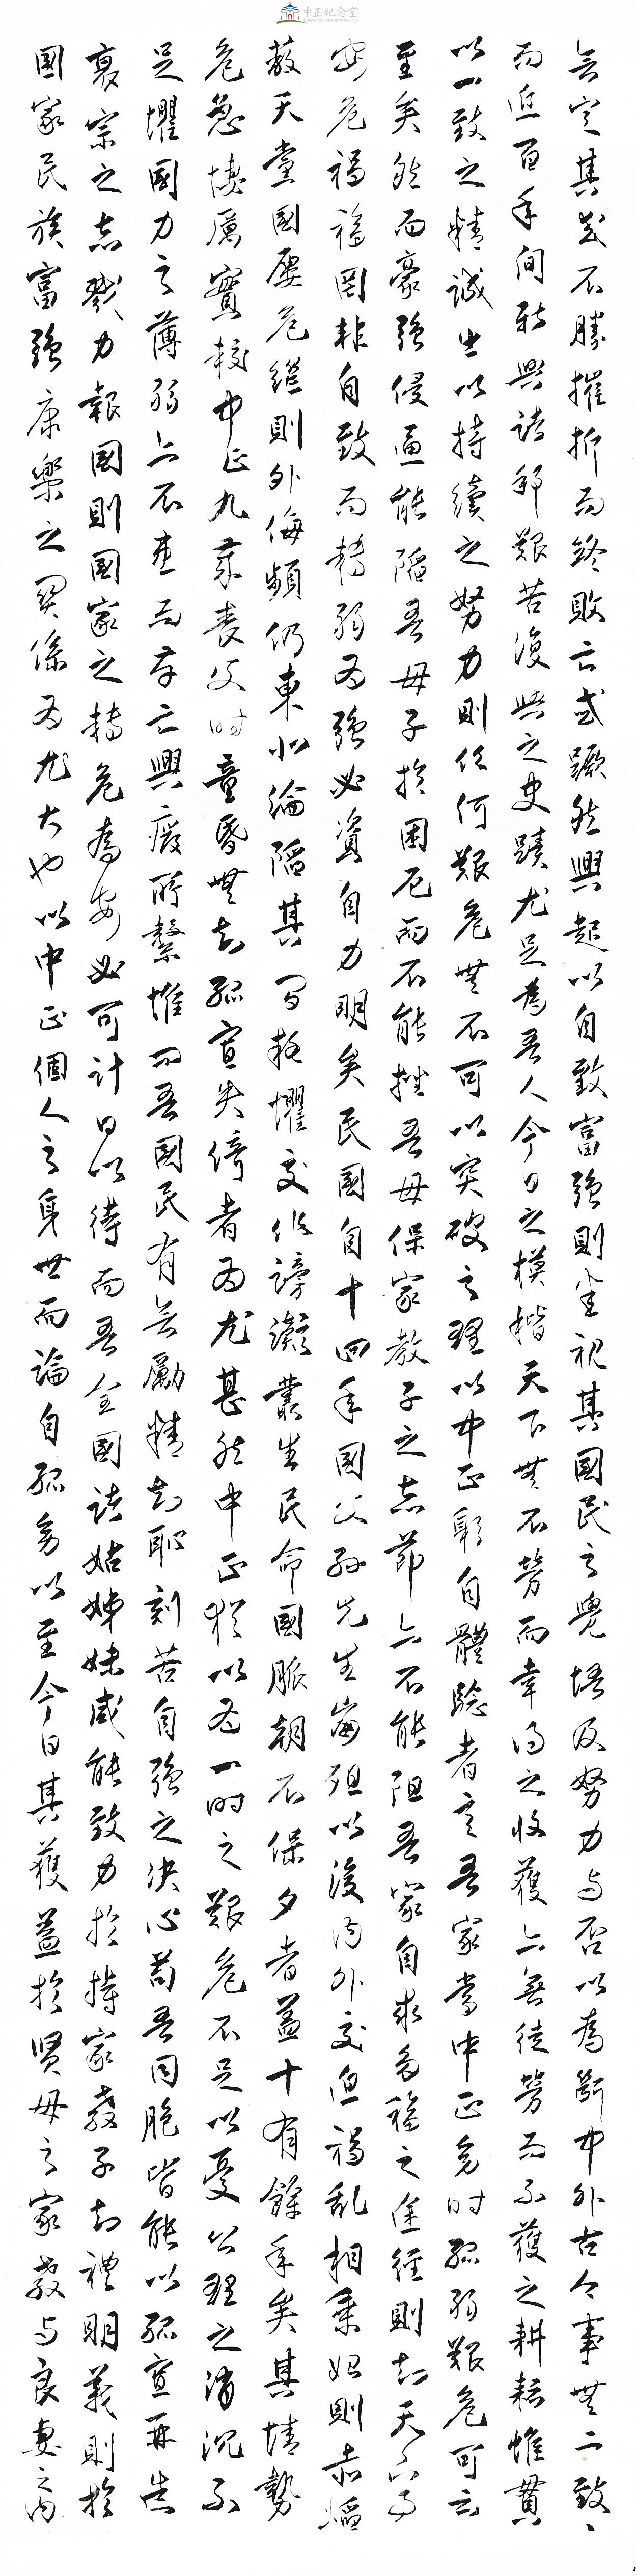 中正紀念堂
無定其或不勝摧折而終敗亡或蹶然興起以自致富強則坐視其國民之覺悟及努力与否以為斷中外古今事無二致、
而近百年間新興諸邦艱苦復興之史蹟尤足為吾人今日之模楷天下無不勞而幸得之收獲亦無徒勞而不獲之耕耘惟貫
以一致之精誠出以持續之努力則任何艱危無不可以突破之理以中正躬自體驗者言吾家當中正兒時孤弱艱危可云
至矣然而豪強侵逼能陷吾母子於困厄而不能挫吾母保家教子之志節亦不能阻吾家自求多福之途徑則知天下事
安危禍福罔非自致而轉弱為強必資自力明矣民國自十四年國父孫先生崩殂以後內外交迫禍亂相乘始則赤燄
蔽天黨國屢危繼則外侮頻仍東北淪陷其間疑懼交作謗讟叢生民命國脈朝不保夕者蓋十有餘年矣其情勢
危急悽厲實較中正九歲喪父時童昏無知孤寡失倚者為尤甚然中正猶以為一時之艱危不足以憂公理之消沉不
足懼國力之薄弱亦不患而存亡興廢所繫惟問吾國民有無勵精知恥刻苦自強之決心苟吾同胞皆能以孤寡無告
衰宗之志戮力報國則國家之轉危為安必可計日以待而吾全國諸姑姊妹咸能致力於持家教子知禮明義則於
國家民族富強康樂之關係為尤大也以中正個人之身世而論自孤兒以至今日其獲益於賢母之家教与良妻之內